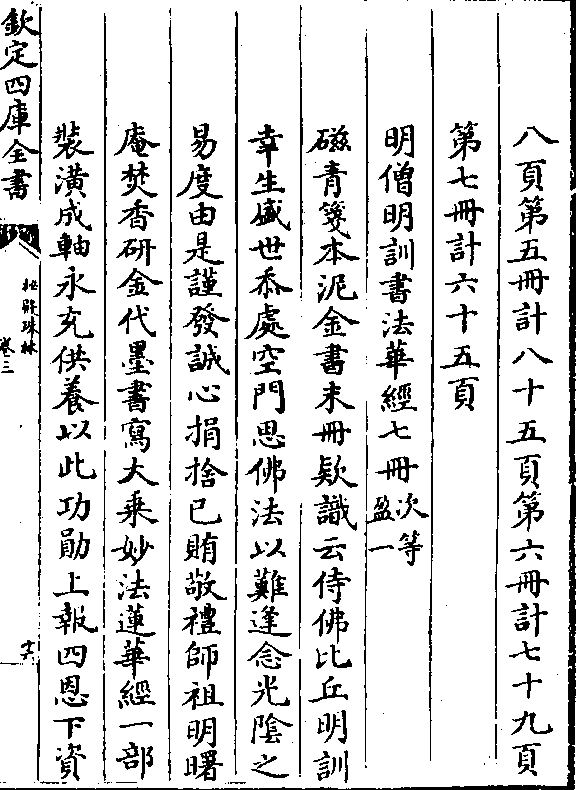 八頁第五冊計八十五頁第六冊計七十九頁
第七冊計六十五頁
明僧明訓書法華經七冊次等盈一
磁青箋本泥金書末冊欵識云侍佛比丘明訓
幸生盛世忝處空門思佛法以難逢念光陰之
易度由是謹發誠心捐捨已賄敬禮師祖明曙
庵焚香研金代墨書寫大乘妙法蓮華經一部
裝潢成軸永充供養以此功勛上報四恩下資
欽定四庫全書
秘殿珠林
卷三
十六